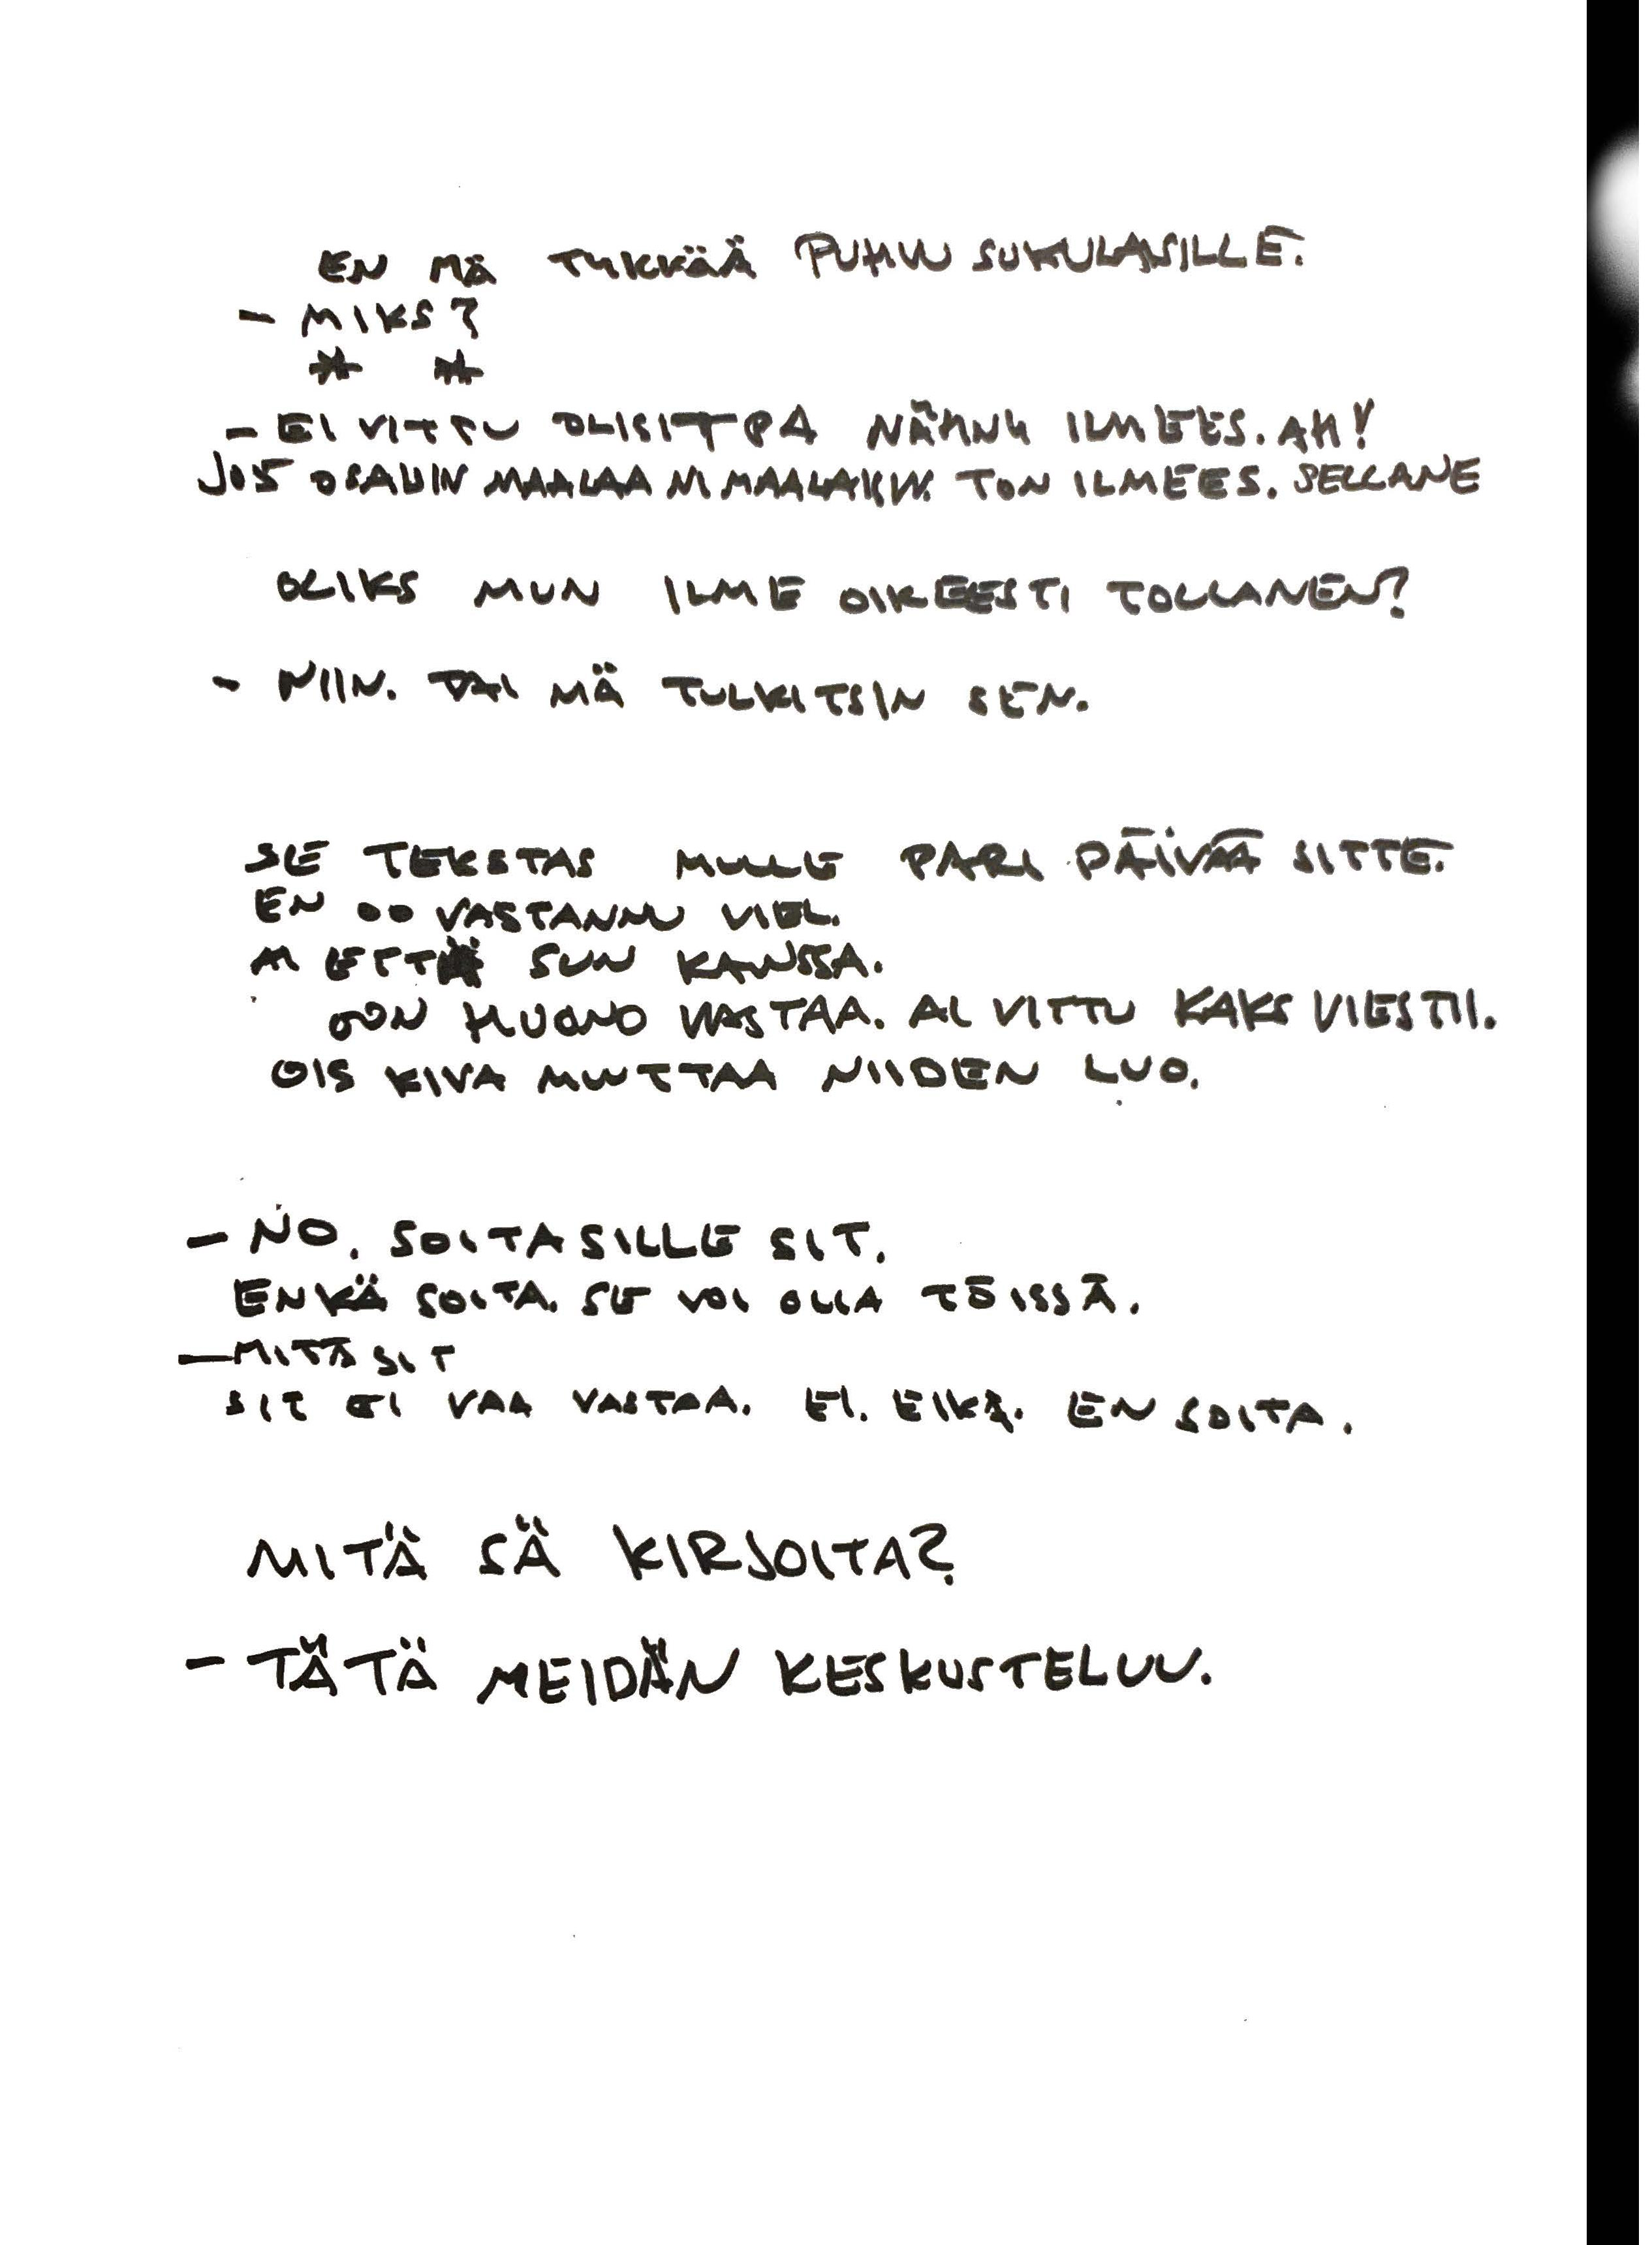 EN MÄ TYKKÄÄ PUHUU SUKULAISILLE.
- MIKS?
* *
- EI VITTU OLISITPA NÄHNY ILMEES. AH!
JOS OSAISIN MAALAA NI MAALAISIN TON ILMEES. SELLANE
OLIKS MUN ILME OIKEESTI TOLLANEN?
- NIIN. TAI MÄ TULKITSIN SEN.
SE TEKSTAS MULLE PARI PÄIVÄÄ SITTE.
EN OO VASTANNU VIEL.
NI ETTÄ SUN KANSSA.
OON HUONO VASTAA. AI VITTU KAKS VIESTII.
OIS KIVA MUUTTAA NIIDEN LUO.
- NO. SOITA SILLE SIT.
ENKÄ SOITA. SE VOI OLLA TÖISSÄ.
- MITÄ SIT
SIT EI VAA VASTAA. EI. EIKÄ. EN SOITA.
MITÄ SÄ KIRJOITA?
- TÄTÄ MEIDÄN KESKUSTELUU.